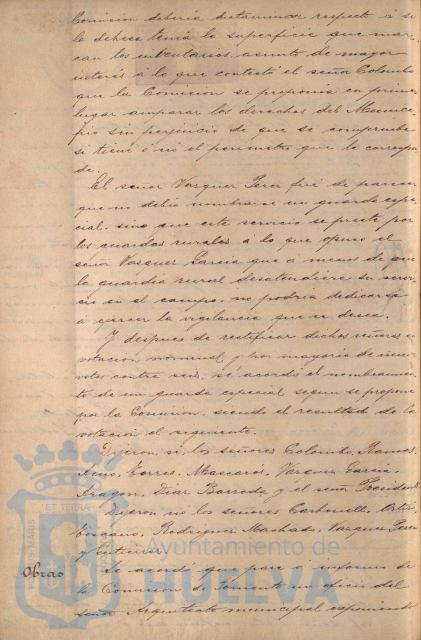 Comision deberia dictaminar respecto á si
la dehesa tenia la superficie que mar-
can los inventarios, asunto de mayor
interés á lo que contestó el señor Colombo
que la Comision se proponia en primer
lugar amparar los derechos del Munici-
pio sin perjuicio de que se compruebe
si tiene ó nó el perimetro que le correspon
de.
El señor Vazquez Perez fué de parecer
que no debia nombrarse un guarda espe-
cial, sino que este servicio se preste por
los guardas rurales, á lo que opuso el
señor Vazquez Garcia que á menos de que
la guardia rural desatendiera su servi-
cio en el campo, no podria dedicarse
á ejercer la vigilancia que se desea.
Y despues de rectificar dichos señores en
votacion nominal y por mayoria de nueve
votos contra seis, se acordó el nombramien-
to de un guarda especial segun se propone
por la Comision, siendo el resultado de la
votacion el siguiente.
Dijeron si los señores Colombo, Ramos,
Torres, Mascarós, Vazquez Garcia,
Aragon, Diaz Barreda y el señor Presidente
Dijeron nó los señores Carbonell, Ortiz,
Toscano, Rodriguez Machado, Vazquez Perez
y
Obras
Se acordó que pase á informe de
la Comision de Fomento un oficio del
señor Arquitecto municipal esponiendo
Ayuntamiento de
HUELVA